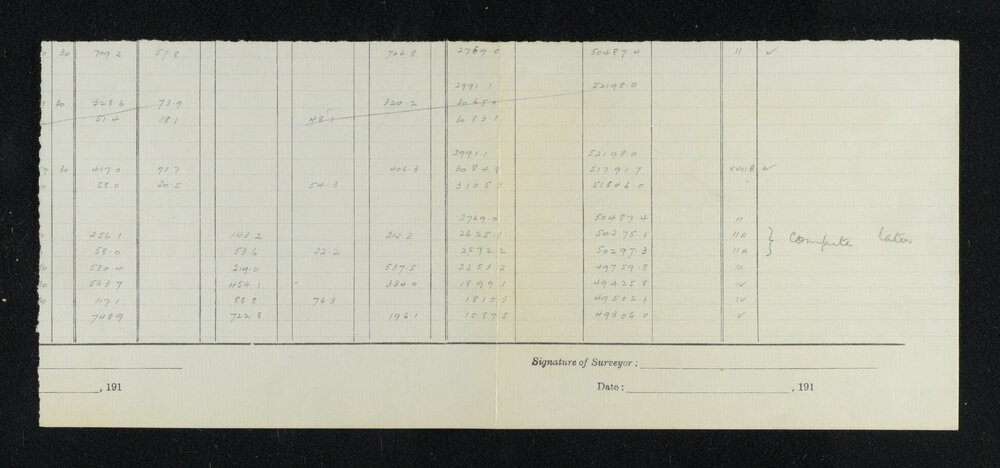 30 709.2 57.8 706.8 2769.0 50487.4 II ✓
2991.1 52198.0
30 328.6 73.9 320.2 3065.0
51.4 18.1 48.1 3083.1
2991.1 52198.0
30 417.0 93.7 406.3 3084.8 51791.7 XVIII B ✓
58.0 20.5 54.3 3105.3 51846.0
2769.0 50487.4 II
256.1 143.2 212.3 2625.8 50275.1 IIA
58.0 53.6 22.2 2572.2 50297.3 IIA } compute later
580.4 219.0 537.5 2353.2 49759.8 III
563.7 454.1 334.0 1899.1 49425.8 IV
117.1 88.8 76.3 1810.3 49502.1 IV
748.9 722.8 196.1 1087.5 49306.0 V
Signature of Surveyor:
, 191
Date: , 191